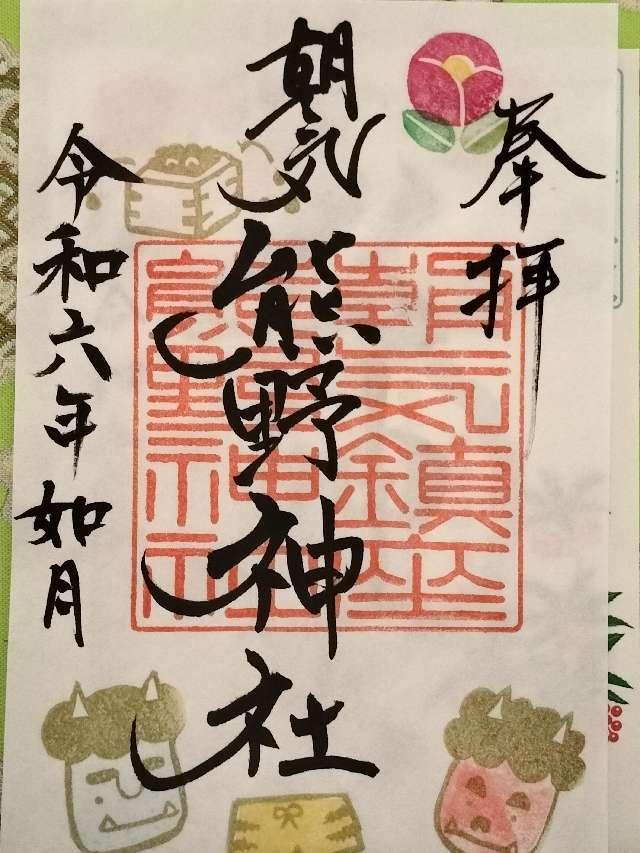 奉拝
朝気熊野神社
令和六年如月
朝気鎮座
熊野神社